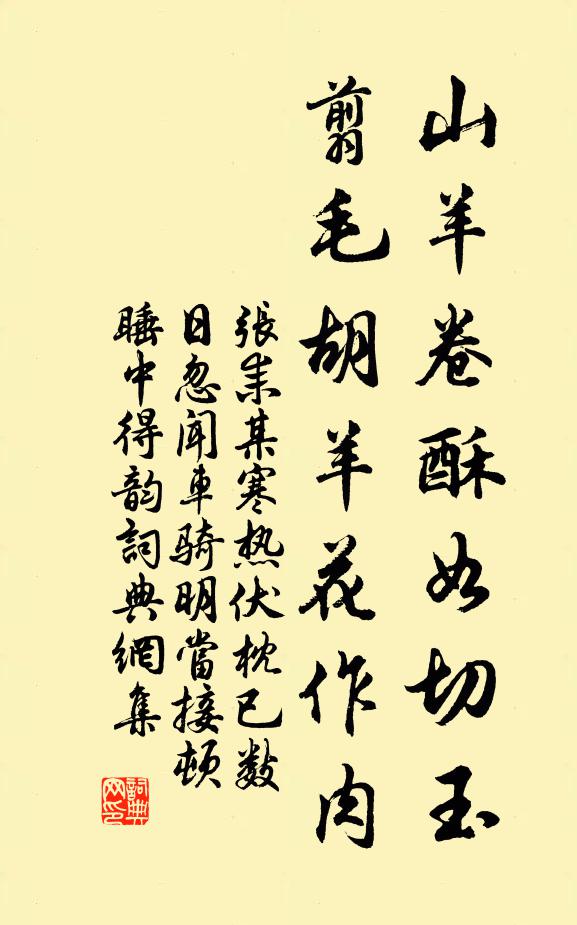 山羊卷酥如切玉
翦毛胡羊花作肉
張耒某寒热伏枕已数
日忽闻車骑明當接頓
睡中得韵詞典網集
詞典
网印